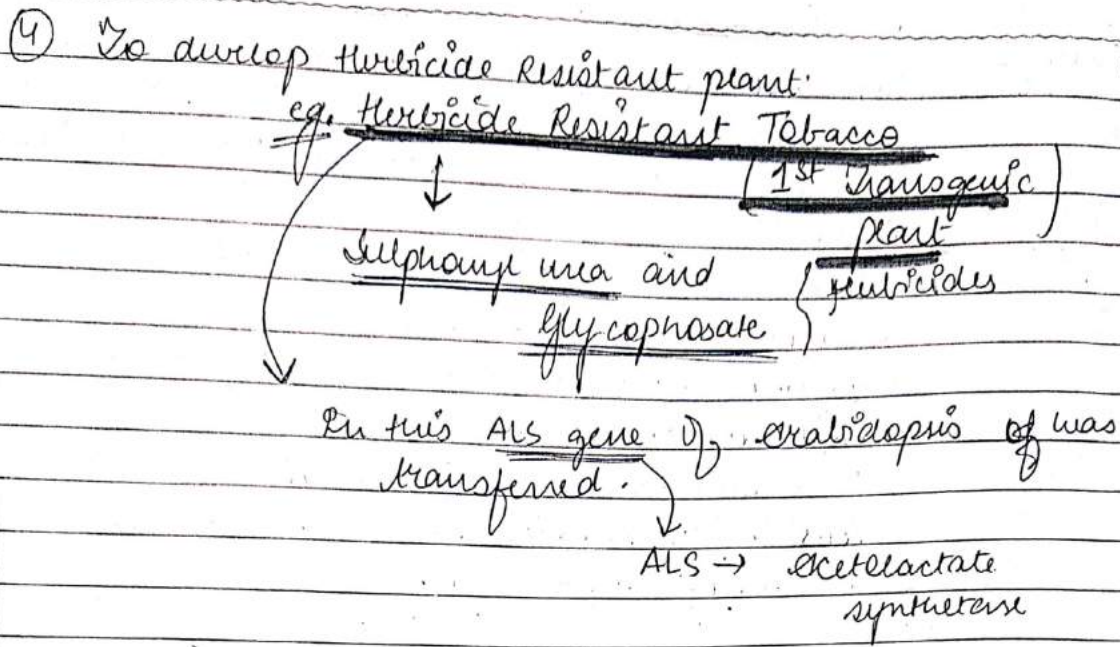 ④ To develop Herbicide Resistant plant.
eg. Herbicide Resistant Tobacco
(1st Transgenic
plant)
Sulphonyl urea and
Glycophosate } Herbicides
In this ALS gene of Arabidopsis of was
transferred.
ALS → Acetolactate
synthetase